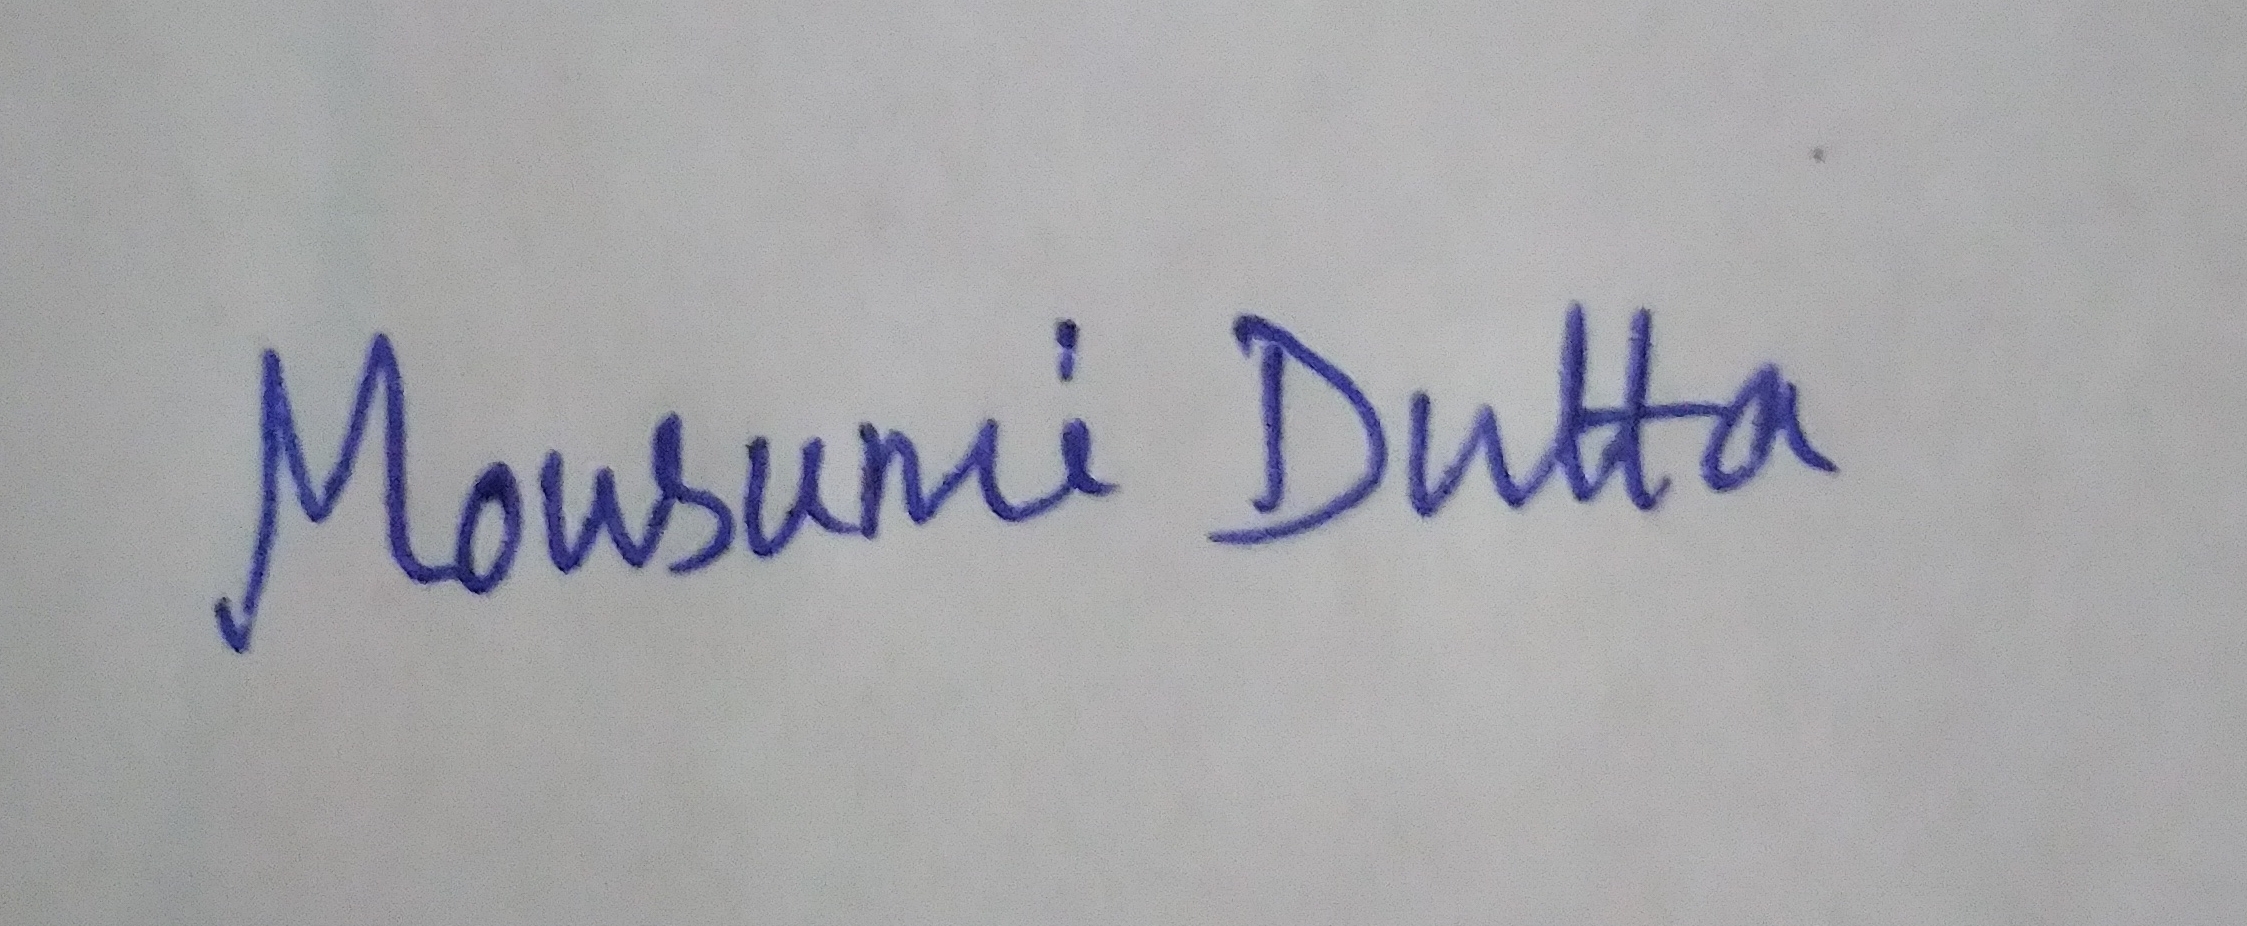 Mousumi Dutta